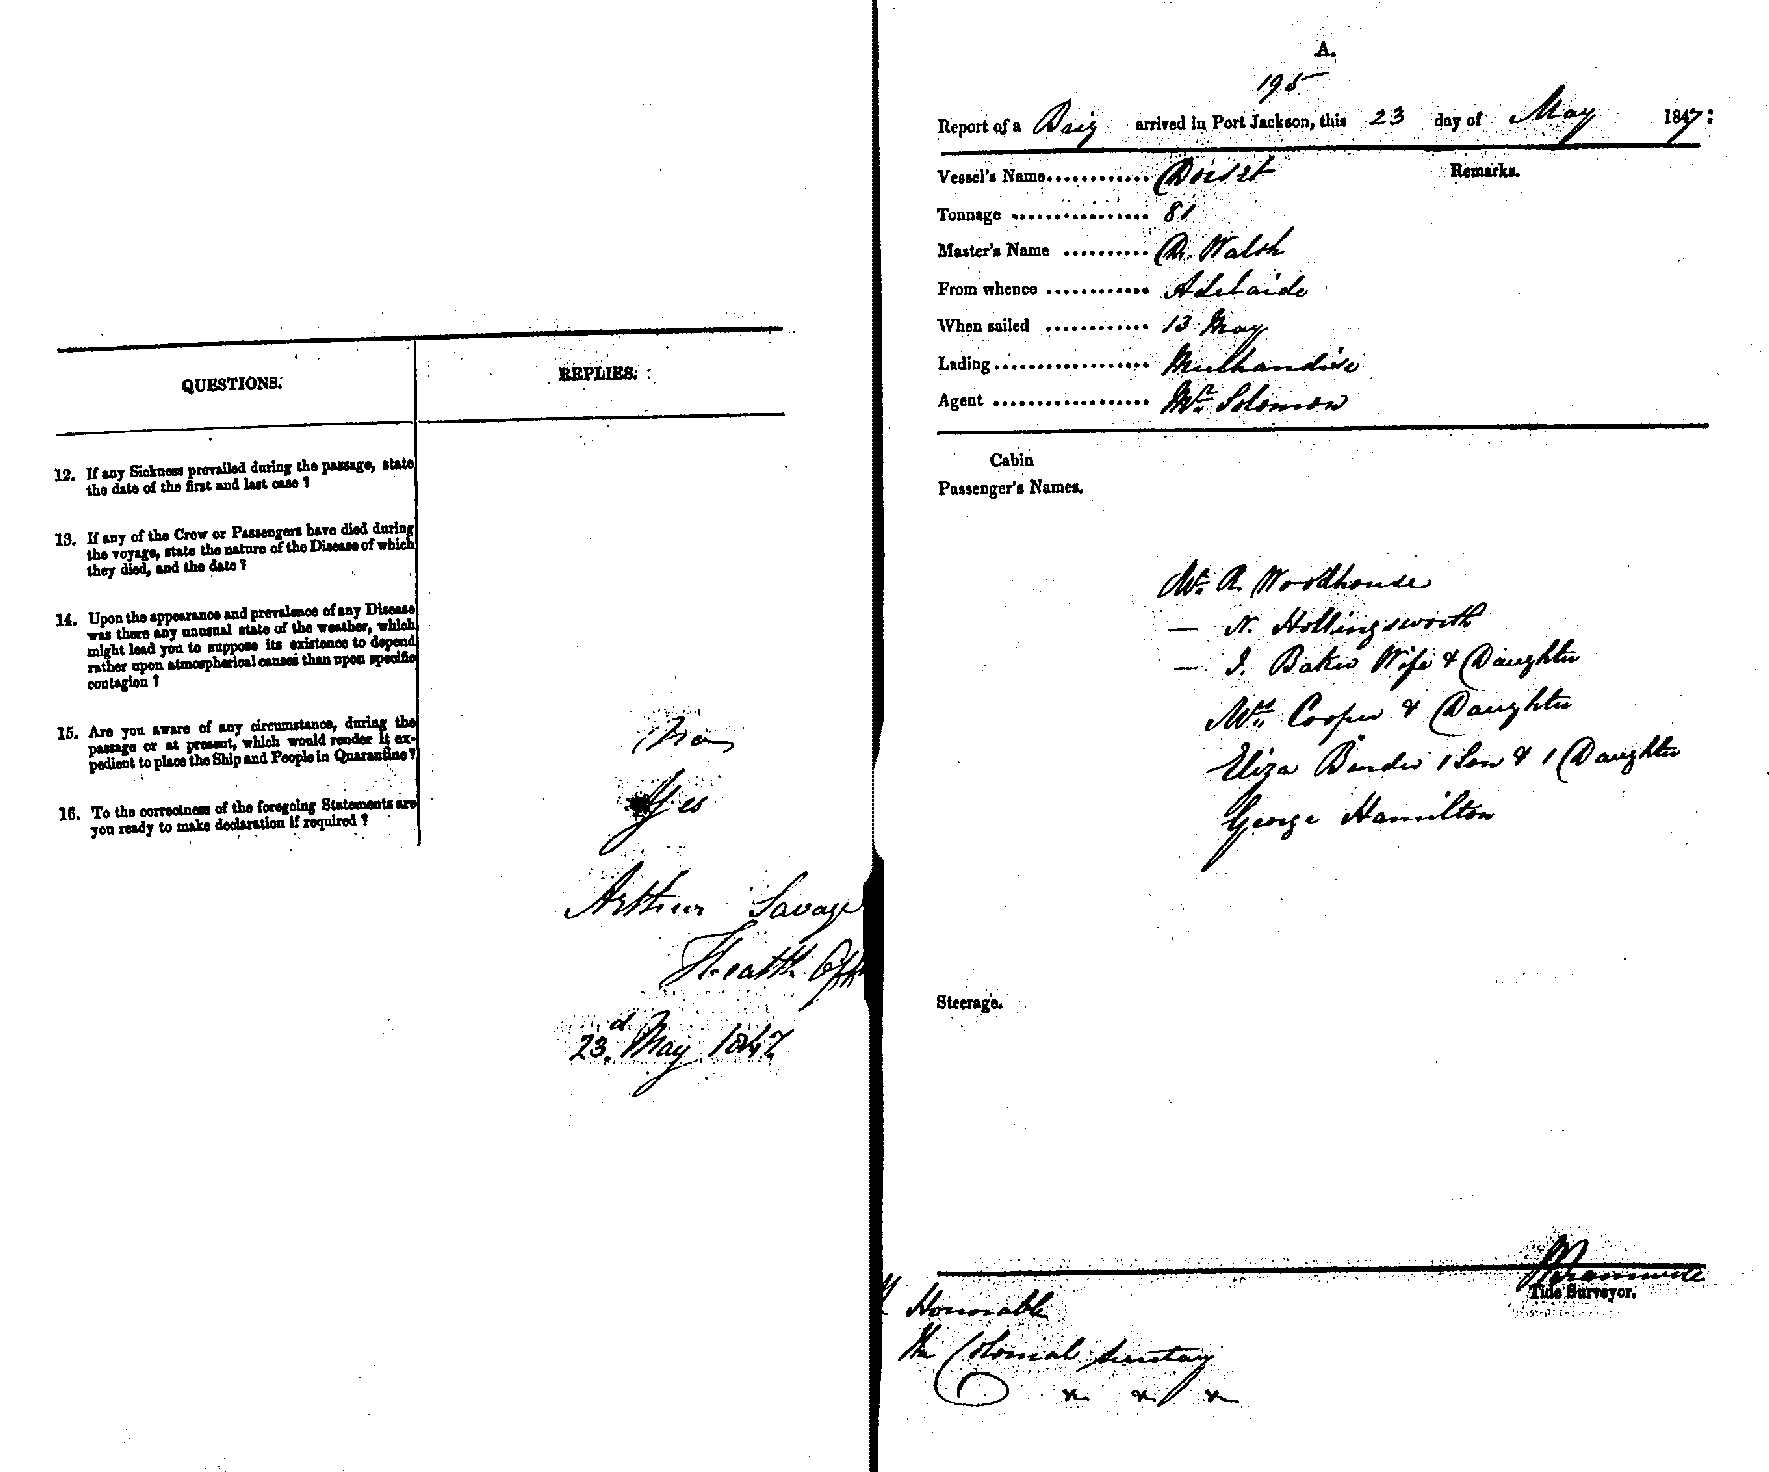 QUESTIONS.
REPLIES.
12. If any Sickness prevailed during the passage, state
the date of the first and last case ?
13. If any of the Crew or Passengers have died during
the voyage, state the nature of the Disease of which
they died, and the date ?
14. Upon the appearance and prevalence of any Disease
was there any unusual state of the weather, which
might lead you to suppose its existence to depend
rather upon atmospherical causes than upon specific
contagion ?
15. Are you aware of any circumstance, during the
passage or at present, which would render it ex-
pedient to place the Ship and People in Quarantine ?
No
16. To the correctness of the foregoing Statements are
you ready to make declaration if required ?
Yes
Arthur Savage
Health Off
23d May 1847
A.
195
Report of a Brig arrived in Port Jackson, this 23 day of May 1847:
Vessel's Name............ Dorset
Remarks.
Tonnage ................ 81
Master's Name .......... Walsh
From whence ............ Adelaide
When sailed ............ 13 May
Lading.................. Merchandise
Agent .................. Mr. Solomon
Cabin
Passenger's Names.
Mr. A. Woodhouse
— N. Hollingsworth
— J. Baker Wife & Daughter
Mrs. Cooper & Daughter
Eliza 1 Son & 1 Daughter
George Hamilton
Steerage.
Tide Surveyor.
Honorable
The Colonial Secretary